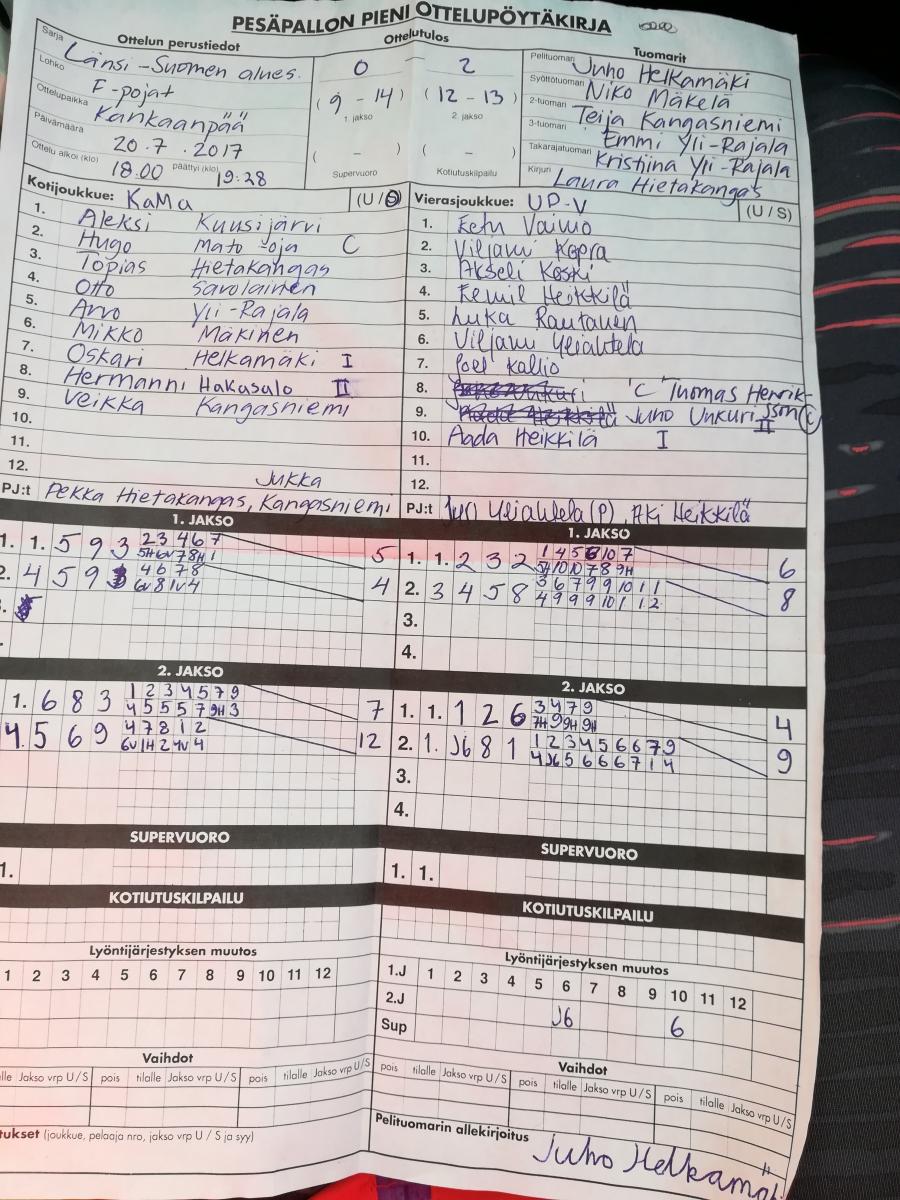 PESÄPALLON PIENI OTTELUPÖYTÄKIRJA
Ottelun perustiedot
Sarja Länsi-Suomen alues.
Lohko F-pojat
Ottelupaikka Kankaanpää
Päivämäärä 20.7.2017
Ottelu alkoi (klo) 18.00 päättyi (klo) 19:28
Ottelutulos
0 – 2
(9 - 14) (12 - 13)
1. jakso 2. jakso
( - ) ( - )
Supervuoro Kotiutuskilpailu
Tuomarit
Pelituomari Juho Helkamäki
Syöttötuomari Niko Mäkelä
2-tuomari Teija Kangasniemi
3-tuomari Emmi Yli-Rajala
Takarajatuomari Kristiina Yli-Rajala
Kirjuri Laura Hietakangas
Kotijoukkue: KaMa (U/S)
1. Aleksi Kuusijärvi
2. Hugo Mato-oja C
3. Topias Hietakangas
4. Otto Savolainen
5. Arvo Yli-Rajala
6. Mikko Mäkinen
7. Oskari Helkamäki I
8. Hermanni Hakasalo II
9. Veikka Kangasniemi
10.
11.
12.
Jukka
PJ:t Pekka Hietakangas, Kangasniemi
Vierasjoukkue: UP-V (U/S)
1. Eetu Vainio
2. Viljami Kopra
3. Akseli Koski
4. Eemil Heikkilä
5. Luka Rautanen
6. Viljami Yliahtela
7. Joel Kallio
8. "C" Tuomas Henrik-
9. Juho Unkuri sson C
II
10. Aada Heikkilä I
11.
12.
PJ:t Jyri Yliahtela (P), Aki Heikkilä
1. JAKSO
1. 1. 5 9 3 2 3 4 6 7 5
5H 6V 7 8H 1
2. 4 5 9 3 4 6 7 8 4
6V 8 1V 4
1. JAKSO
1. 1. 2 3 2 1 4 5 6 10 7 6
5H 10 10 7 8 9H
2. 3 4 5 8 3 6 7 9 9 10 1 1 8
4 9 9 9 10 1 1 2
3.
4.
2. JAKSO
1. 6 8 3 1 2 3 4 5 7 9 7
4 5 5 5 7 9H 3
4. 5 6 9 4 7 8 1 2 12
6V 1H 2 4V 4
2. JAKSO
1. 1. 1 2 6 3 4 7 9 4
7H 9 9H 9H
2. 1. J6 8 1 1 2 3 4 5 6 6 7 9 9
4 J6 5 6 6 6 7 1 4
3.
4.
SUPERVUORO
1.
SUPERVUORO
1. 1.
KOTIUTUSKILPAILU
KOTIUTUSKILPAILU
Lyöntijärjestyksen muutos
1 2 3 4 5 6 7 8 9 10 11 12
Lyöntijärjestyksen muutos
1.J 1 2 3 4 5 6 7 8 9 10 11 12
2.J J6 6
Sup
Vaihdot
lalle Jakso vrp U/S pois tilalle Jakso vrp U/S pois tilalle Jakso vrp U/S
Vaihdot
pois tilalle Jakso vrp U/S pois tilalle Jakso vrp U/S pois tilalle Jakso vrp U/S
tukset (joukkue, pelaaja nro, jakso vrp U / S ja syy)
Pelituomarin allekirjoitus
Juho Helkamäki